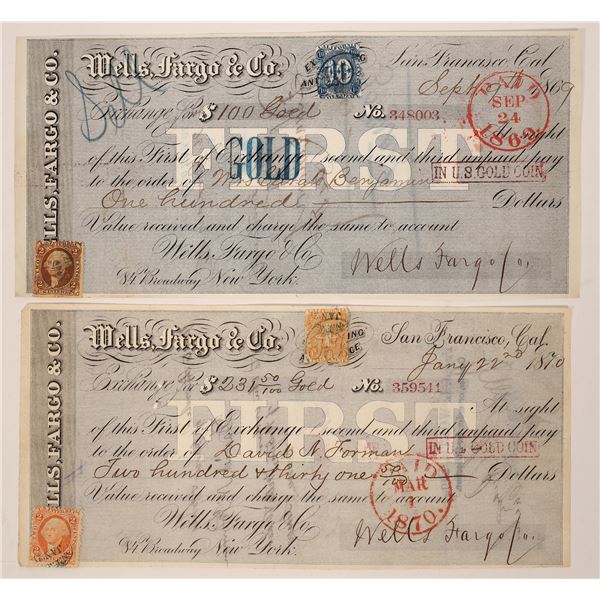 WELLS, FARGO & CO.
Wells, Fargo & Co. San Francisco, Cal
10
Sept 1869
PAID
SEP
24
1869
Exchange for $ 100 Gold No. 348003. At sight
FIRST
of this First of Exchange second and third unpaid pay
GOLD
to the order of Mrs Sarah Benjamin
IN U.S. GOLD COIN
One hundred Dollars
Value received and charge the same to account
Wells, Fargo & Co
84 Broadway New York.
Wells Fargo Co.
WELLS, FARGO & CO.
Wells, Fargo & Co. San Francisco, Cal.
Jany 22nd 1870
Exchange for $ 231 50/100 Gold No. 359541
At sight
FIRST
of this First of Exchange second and third unpaid pay
to the order of David N. Forman
IN U.S. GOLD COIN
Two hundred & thirty one 50/100 Dollars
PAID
MAR
1870.
Value received and charge the same to account
Wells, Fargo & Co
84 Broadway New York.
Wells Fargo Co.